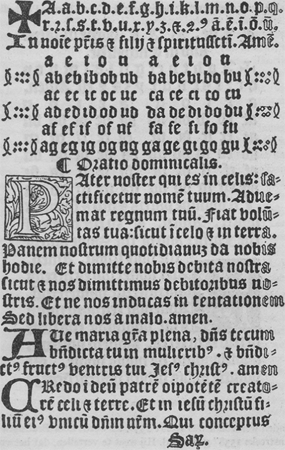 ✠ A.a.b.c.d.e.f.g.h.i.k.l.m.n.o.p.q.
r.z.ſ.s.t.v.u.x.y.z.⁊.ꝛ.9 ã.ẽ.ĩ.õ.ũ.
In noĩe p̃ris ⁊ filij ⁊ ſpirituſſcti. Amẽ.
a e i o u a e i o u
ab eb ib ob ub ba be bi bo bu
ac ec ic oc uc ca ce ci co cu
ad ed id od ud da de di do du
af ef if of uf fa fe fi fo fu
ag eg ig og ug ga ge gi go gu
¶ Oratio dominicalis.
PAter noſter qui es in celis: ſa-
tificetur nomẽ tuum. Adue-
mat regnum tuũ. Fiat volũ-
tas tua: ſicut ĩ celo ⁊ in terra.
Panem nostrum quotidianuz da nobis
hodie. Et dimitte nobis debita noſtra
ſicut ⁊ nos dimittimus debitoribus no-
ſtris. Et ne nos inducas in tentationem
Sed libera nos a malo. amen.
AUe maria gr̃a plena, dñs tecum
bñdicta tu in mulierib9. ⁊ bñdi-
ct9 fruct9 ventris tui Jeſ9 chriſt9. amen
CRedo i deũ patrẽ oipotẽtẽ creato-
rẽ celi ⁊ terre. Et in ieſũ chriſtũ fi-
liũ ei9 vnicũ dñm nẽm. Qui conceptus
Sax.